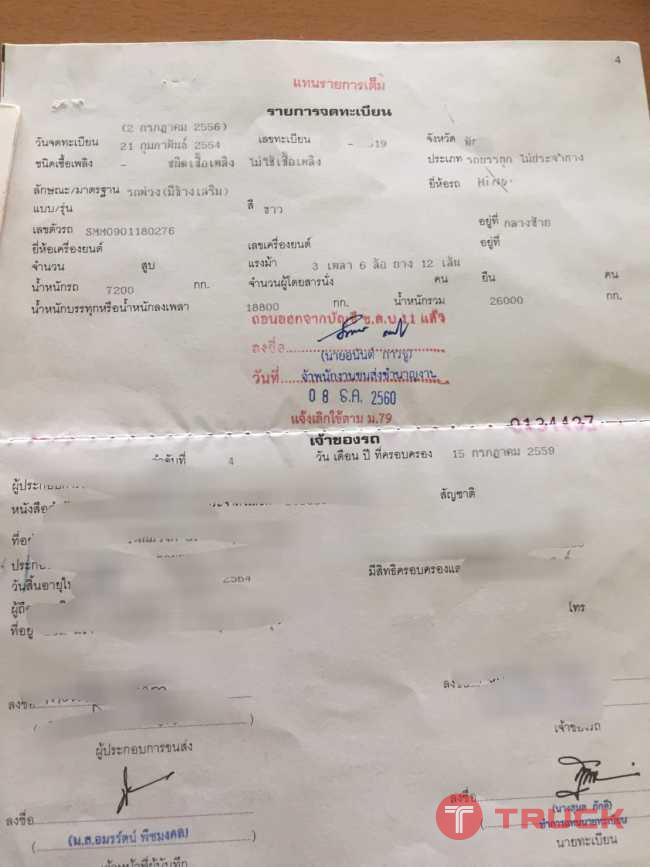 4
แทนรายการเต็ม
รายการจดทะเบียน
(2 กรกฎาคม 2556)
วันจดทะเบียน 21 กุมภาพันธ์ 2554 เลขทะเบียน 19 จังหวัด
ชนิดเชื้อเพลิง - ชนิดเชื้อเพลิง ไม่ใช้เชื้อเพลิง ประเภท รถบรรทุก ไม่ประจำทาง
ลักษณะ/มาตรฐาน รถพ่วง(มีข้างเสริม) ยี่ห้อรถ
แบบ/รุ่น สี ขาว
เลขตัวรถ SMM0901180276 อยู่ที่ กลางซ้าย
ยี่ห้อเครื่องยนต์ เลขเครื่องยนต์ อยู่ที่
จำนวน สูบ แรงม้า 3 เพลา 6 ล้อ ยาง 12 เส้น
น้ำหนักรถ 7200 กก. จำนวนผู้โดยสารนั่ง คน ยืน คน
น้ำหนักบรรทุกหรือน้ำหนักลงเพลา 18800 กก. น้ำหนักรวม 26000 กก.
ถอนออกจากบัญชี ข.ส.บ.11 แล้ว
ลงชื่อ
วันที่ เจ้าพนักงานขนส่งชำนาญงาน
08 ธ.ค. 2560
แจ้งเลิกใช้ตาม ม.79
เจ้าของรถ
ลำดับที่ 4 วัน เดือน ปี ที่ครอบครอง 15 กรกฎาคม 2559
ผู้ประกอบการ
สัญชาติ
หนังสือ
ที่อยู่
มีสิทธิครอบครอง
วันสิ้นอายุ 2564
โทร
ที่อยู่
ลงชื่อ ลง
เจ้าของรถ
ผู้ประกอบการขนส่ง
ลงชื่อ ลงชื่อ
(น.ส.อมรรัตน์ พืชมงคล)
ทำการแทนนายทะเบียน
นายทะเบียน
เจ้าหน้าที่ผู้บันทึก
TRUCK